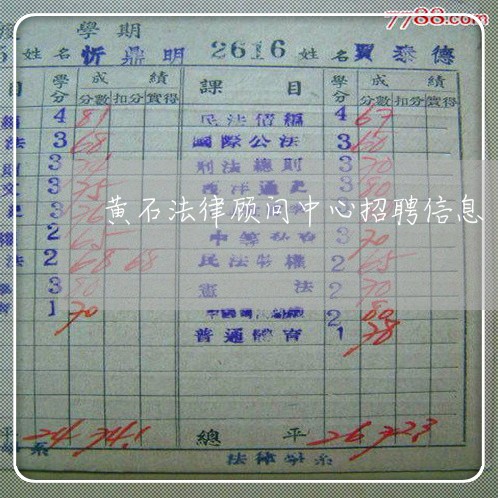 7788.com
學期
5 姓名 忻鼎明 2616 姓名 賈泰德
目 學分 成績 分數 扣分 實得 課目 學分 成績 分數 扣分 實得
4 81 民法債編 4 67
法 3 68 國際公法 3 60
3 刑法總則 3 70
3 75 西洋通史 3 80
黄石法律顾问中心招聘信息
2 65 3 70
法 2 68 68 民法物權 2 65
3 80 憲法 2 70
1 70 2 80
普通體育 1 78
平 24 74.1 總平 26 72.3
系 法律學系